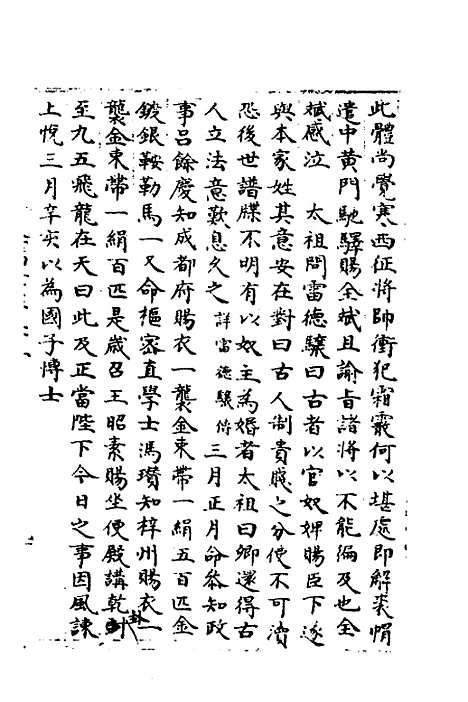 此體尚覺寒西征將帥衝犯霜霰何以堪處即解裘帽
遣中黃門馳驛賜全斌且諭旨諸將以不能徧及也全
斌感泣　太祖問雷德驤曰古者以官奴婢賜臣下遂
與本家姓其意安在對曰古人制貴賤之分使不可瀆
恐後世譜牒不明有以奴主為婚者太祖曰卿遂得古
人立法意歎息久之詳雷德驤傳三月正月命參知政
事呂餘慶知成都府賜衣一襲金束帶一絹五百匹金
鍍銀鞍勒馬一又命樞密直學士馮瓚知梓州賜衣一
襲金束帶一絹百匹是歲召王昭素賜坐便殿講乾卦
至九五飛龍在天曰此及正當陛下今日之事因風諫
上悅三月辛亥以為國子博士